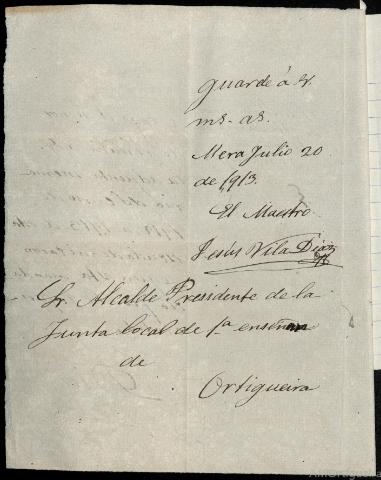 guarde à V.
ms. as.
Mera Julio 20
de 1913.
El Maestro
Jesús Vila Diaz
Sr. Alcalde Presidente de la
Junta local de 1ª enseñan
de
Ortigueira